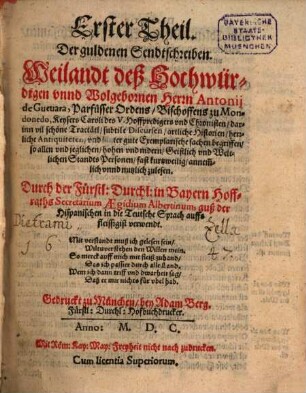 Erster Theil.
Der guldenen Sendtschreiben.
BAYERISCHE
STAATS-
BIBLIOTHEK
MUENCHEN
Weilandt deß Hochwür-
digen vnnd Wolgebornen Herrn Antonij
de Gueuara, Parfüsser Ordens, Bischoffens zu Mon-
donedo, Keysers Caroli des V. Hoffpredigers vnd Chronisten, dar-
inn vil schöne Tractätl, subtile Discursen, artliche Historien, herz-
liche Antiquiteten, vnd lauter gute Exemplarische sachen begriffen,
so allen vnd jeglichen, hohen vnd nidern, Geistlich vnd Welt-
lichen Standts Personen, fast kurtzweilig, annemb-
lich vnnd nutzlich zulesen.
Durch der Fürstl: Durchl: in Bayern Hoff-
raths Secretarium Ægidium Albertinum auß der
Hispanischen in die Teutsche Sprach auffs
fleissigist verwendt.
Mit verstandt muß ich gelesen sein,
Wiltu verstehen den Willen mein,
So merck auff mich mit fleiß zuhand,
Das ich passier durch alle Land,
Wem ich dann triff vnd dwarheit sag,
Daß er mir nichts für vbel hab.
Gedruckt zu München, bey Adam Berg,
Fürstl: Durchl: Hofbuchdrucker.
Anno: M. D. C.
Mit Röm: Kay: May: Freyheit nicht nach zudrucken.
Cum licentia Superiorum.